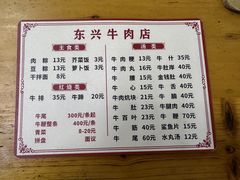 东兴牛肉店
主食类
肉粽 13元 芥菜饭 3元
豆粽 13元 萝卜饭 3元
干拌面 8元
红烧类
牛排 35元 牛腩 20元
牛尾 300元/条起
牛鞭整条 400元/条
青菜 8-20元
拼盘 面议
汤类
牛肉粳 13元 牛什 35元
牛肉丸 16元 牛肚岸 40元
牛腱 15元 金钱肚 40元
牛心 15元 牛舌 40元
牛肉炕块 21元 牛脑 40元
牛肚 21元 牛腿肉 40元
牛百叶 23元 牛鞭 40元
牛筋 40元 鲨鱼片 15元
牛尾 60元 水丸汤 12元